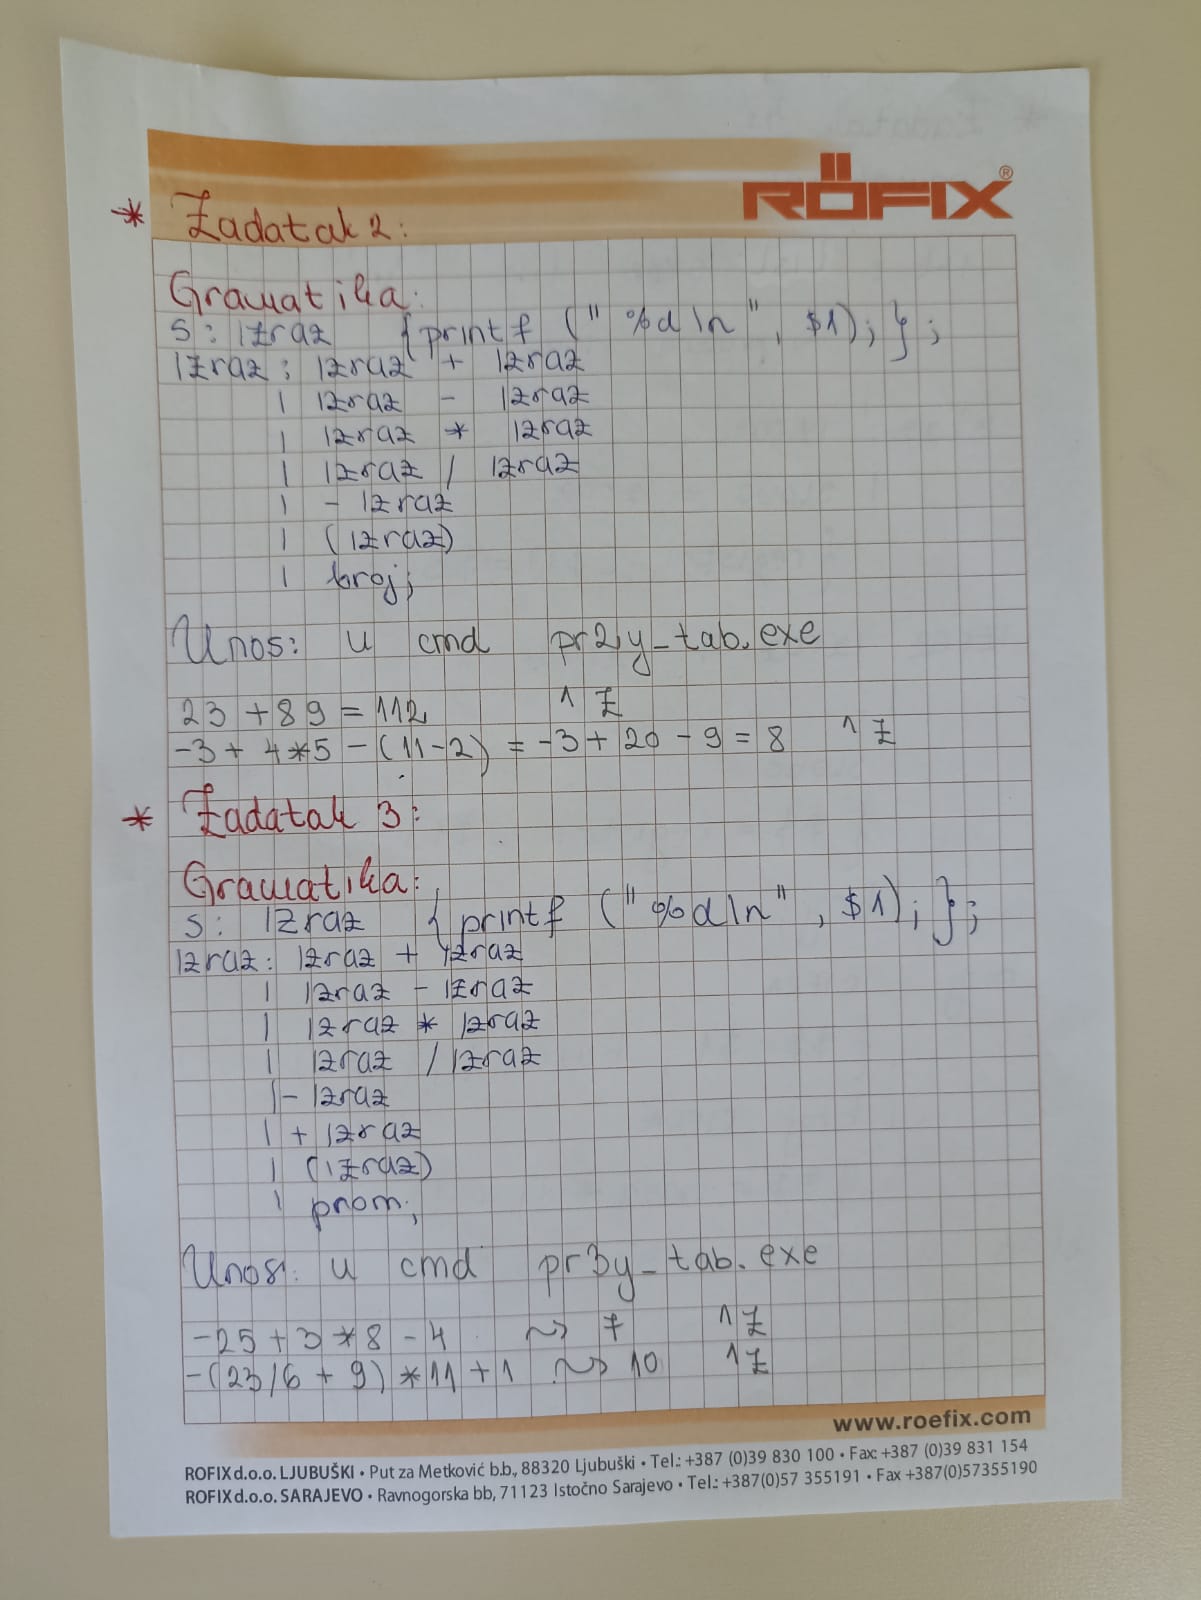 RÖFIX®
* Zadatak 2:
Gramatika:
S: izraz {printf ("%d\n", $1);};
izraz: izraz + izraz
| izraz - izraz
| izraz * izraz
| izraz / izraz
| - izraz
| (izraz)
| broj;
Unos: u cmd pr2y_tab.exe
23 + 89 = 112 ^Z
-3 + 4*5 - (11-2) = -3 + 20 - 9 = 8 ^Z
* Zadatak 3:
Gramatika:
S: izraz {printf ("%d\n", $1);};
izraz: izraz + izraz
| izraz - izraz
| izraz * izraz
| izraz / izraz
| - izraz
| + izraz
| (izraz)
| prom;
Unos: u cmd pr3y_tab.exe
-25 + 3 * 8 - 4 ~> 7 ^Z
-(23/6 + 9) * 11 + 1 ~> 10 ^Z
www.roefix.com
ROFIX d.o.o. LJUBUŠKI • Put za Metković b.b., 88320 Ljubuški • Tel.: +387 (0)39 830 100 • Fax: +387 (0)39 831 154
ROFIX d.o.o. SARAJEVO • Ravnogorska bb, 71123 Istočno Sarajevo • Tel.: +387(0)57 355191 • Fax +387(0)57355190